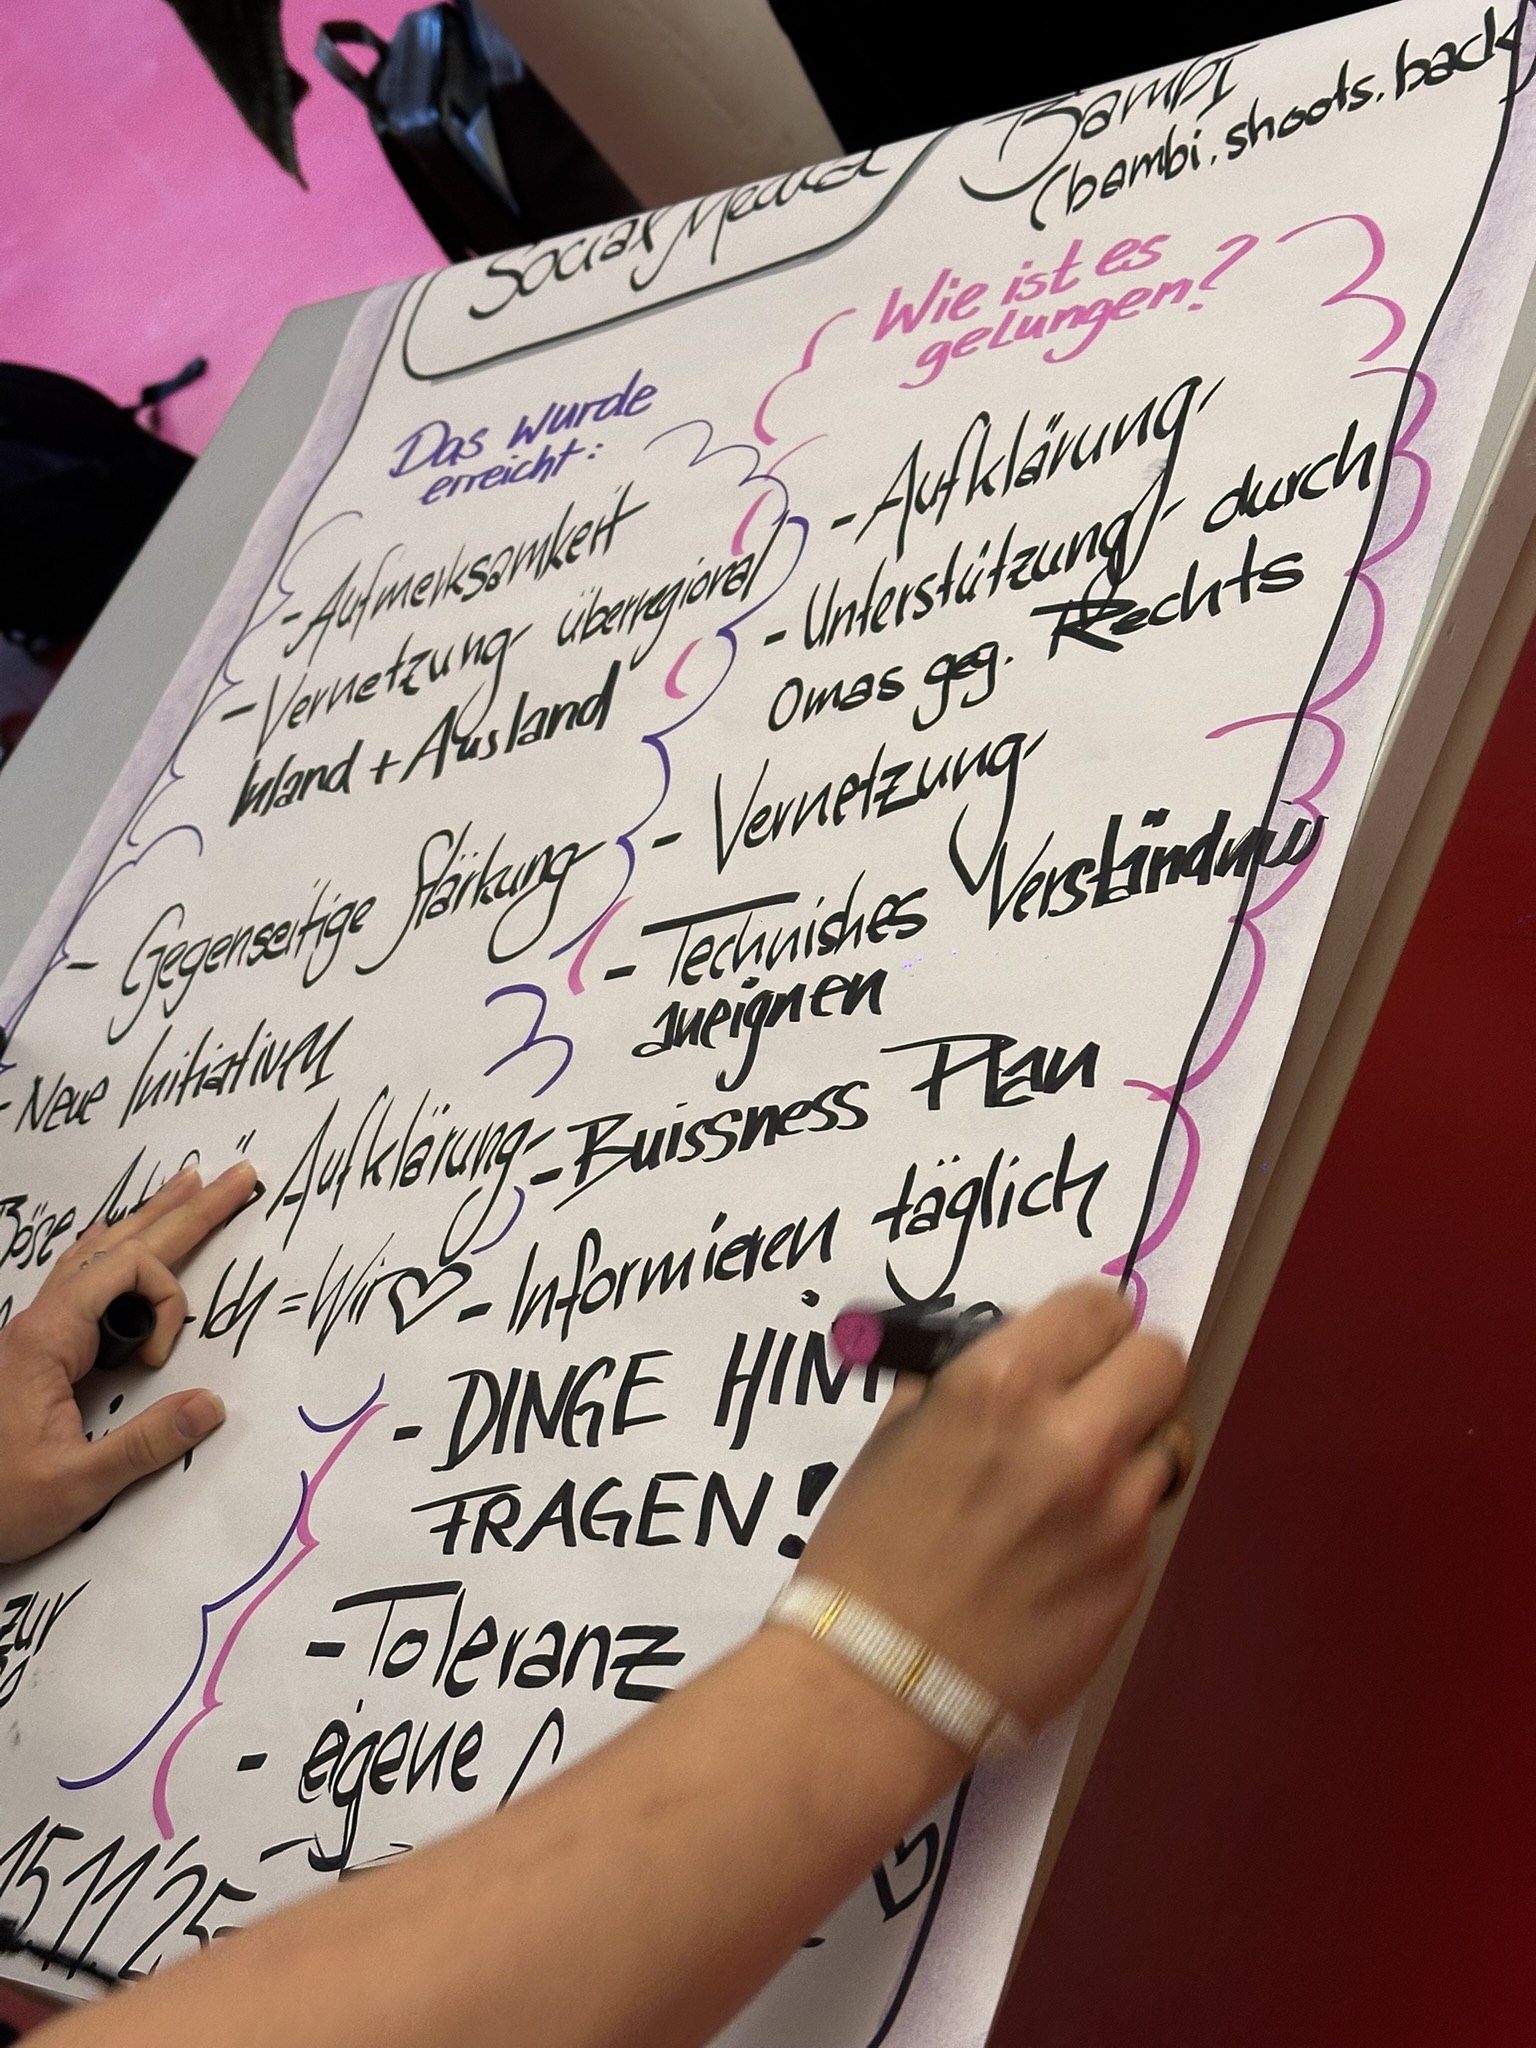 Social Media
Bambi
(bambi.shoots.back
Das wurde
erreicht:
- Aufmerksamkeit
- Vernetzung überregional
Inland + Ausland
- Gegenseitige Stärkung
- Neue Initiativen
Böse
" Aufklärung
- Ich = Wir ♡
zur
15.11.'25
Wie ist es
gelungen?
- Aufklärung
- Unterstützung durch
Omas geg. Rechts
- Vernetzung
- Techniches Verständnis
aneignen
- Buissness Plan
- Informieren täglich
- DINGE
FRAGEN!
- Toleranz
- eigene